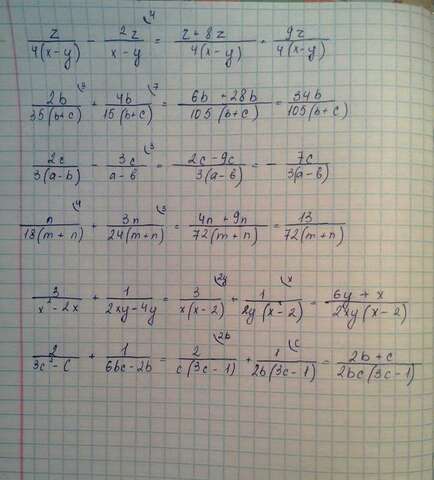 z/4(x-y) - 2z/x-y ⁽⁴ = z+8z/4(x-y) = 9z/4(x-y)
2b/35(b+c) ⁽³ + 4b/15(b+c) ⁽⁷ = 6b+28b/105(b+c) = 34b/105(b+c)
2c/3(a-b) - 3c/a-b ⁽³ = 2c-9c/3(a-b) = - 7c/3(a-b)
n/18(m+n) ⁽⁴ + 3n/24(m+n) ⁽³ = 4n+9n/72(m+n) = 13/72(m+n)
3/x²-2x + 1/2xy-4y = 3/x(x-2) ⁽²ʸ + 1/2y(x-2) ⁽ˣ = 6y+x/2xy(x-2)
2/3c²-c + 1/6bc-2b = 2/c(3c-1) ⁽²ᵇ + 1/2b(3c-1) ⁽ᶜ = 2b+c/2bc(3c-1)